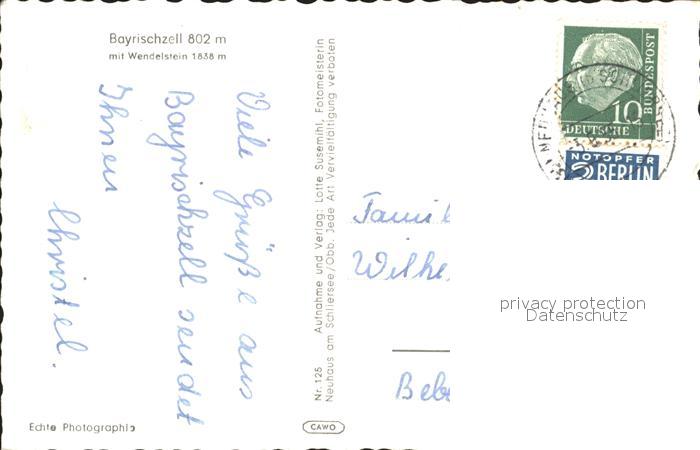 Bayrischzell 802 m
mit Wendelstein 1838 m
Viele Grüße aus
Bayrischzell sendet
Ihnen
Christel.
Echte Photographie
Nr. 125 Aufnahme und Verlag: Lotte Susemihl, Fotomeisterin
Neuhaus am Schliersee/Obb. Jede Art Vervielfältigung verboten
CAWO
10
BUNDESPOST
DEUTSCHE
NOTOPFER
2 BERLIN
Famil
Wilhe
Beb
privacy protection
Datenschutz